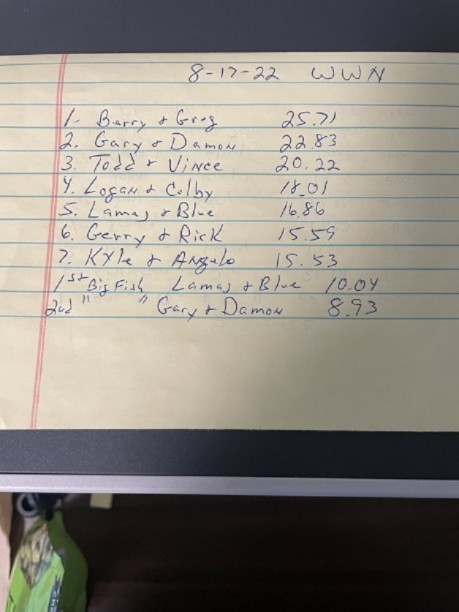 8-17-22 WWN
1. Barry & Greg 25.71
2. Gary & Damon 22.83
3. Todd & Vince 20.22
4. Logan & Colby 18.01
5. Lamas & Blue 16.86
6. Gerry & Rick 15.59
7. Kyle & Angelo 15.53
1st Big Fish Lamas & Blue 10.04
2nd " " Gary & Damon 8.93